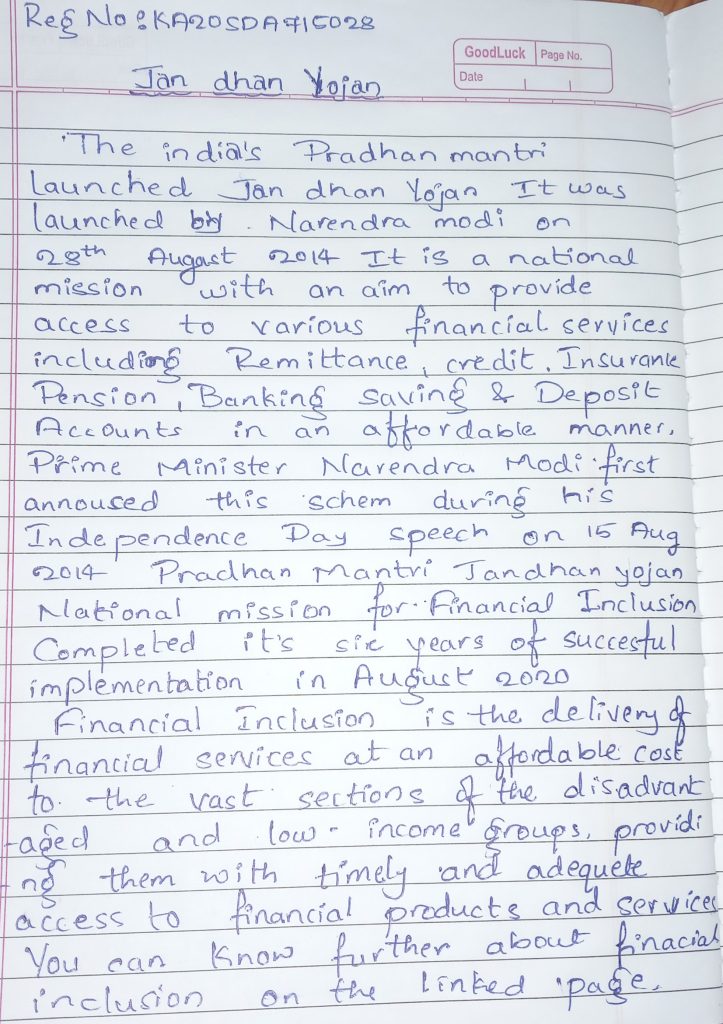 Reg No: KA20SDA715028
GoodLuck Page No.
Date
Jan dhan Yojan
The india's Pradhan mantri
launched Jan dhan Yojan It was
launched by. Narendra modi on
28th August 2014 It is a national
mission with an aim to provide
access to various financial services
including Remittance, credit, Insurance
Pension, Banking saving & Deposit
Accounts in an affordable manner,
Prime Minister Narendra Modi first
annoused this schem during his
Independence Day speech on 15 Aug
2014 Pradhan Mantri Jandhan yojan
National mission for Financial Inclusion
Completed it's six years of succesful
implementation in August 2020
Financial Inclusion is the delivery of
financial services at an affordable cost
to the vast sections of the disadvant
-aged and low-income groups, providi
-ng them with timely and adequete
access to financial products and services
You can know further about finacial
inclusion on the linked page.